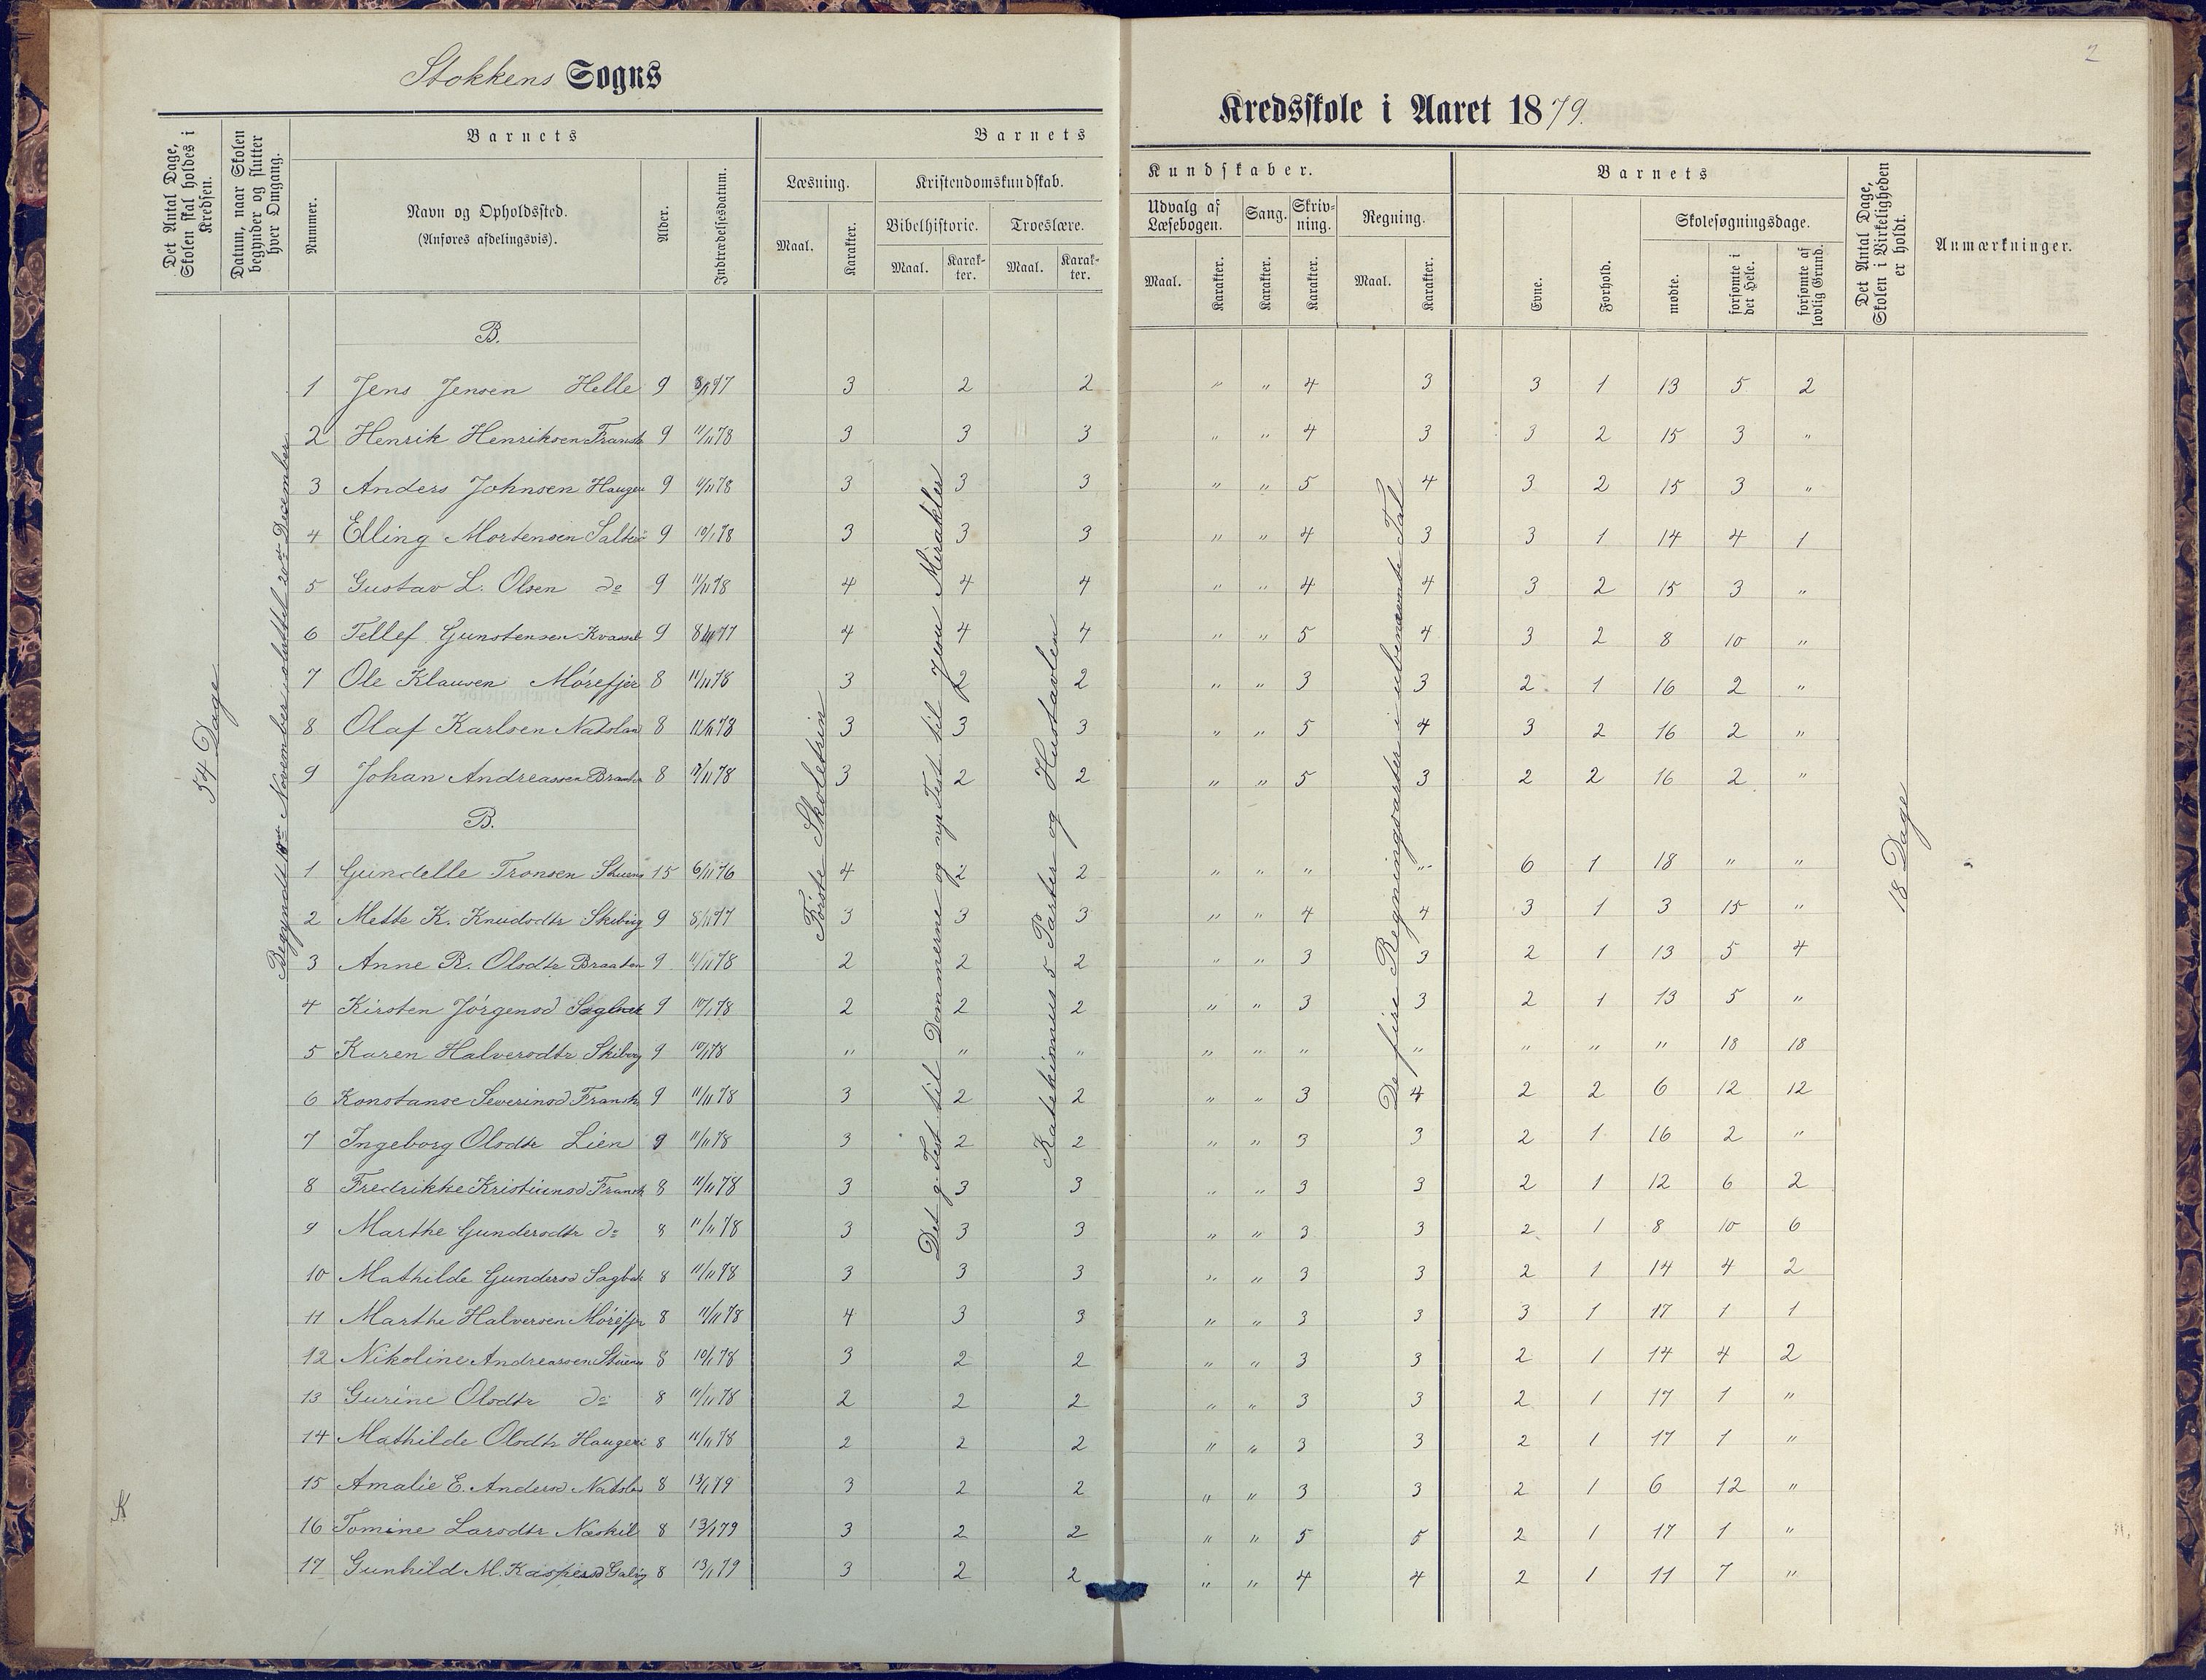 2
Stokkens Sogns
Kredsskole i Aaret 1879.
Det Antal Dage, Skolen skal holdes i Kredsen.
Datum, naar Skolen begynder og slutter hver Omgang.
Barnets
Nummer.
Navn og Opholdssted.
(Anføres afdelingsvis).
Alder.
Indtrædelsesdatum.
Barnets Kundskaber.
Læsning.
Maal. Karakter.
Kristendomskundskab.
Bibelhistorie. Troeslære.
Maal. Karakter. Maal. Karakter.
Udvalg af Læsebogen.
Maal. Karakter.
Sang.
Karakter.
Skrivning.
Karakter.
Regning.
Maal. Karakter.
Barnets
Evne. Forhold.
Skolesøgningsdage.
mødte. forsømte i det Hele. forsømte af lovlig Grund.
Det Antal Dage, Skolen i Virkeligheden er holdt.
Anmærkninger.
54 Dage
November sluttet 20de December
Første Skoletrin
Det g. Test til Dommerne og nye Test til Jesu Mirakler
Katekismus 5 Parter og Hustavlen
De fire Regningsarter i ubenævnte Tal
18 Dage
B.
1 Jens Jensen Helle 9 3 2 2 " " 4 3 3 1 13 5 2
2 Henrik Henriksen 9 11/11 78 3 3 3 " " 4 3 3 2 15 3 "
3 Anders Johnsen 9 11/11 78 3 3 3 " " 5 4 3 2 15 3 "
4 Elling Mortensen 9 10/1 78 3 3 3 " " 4 3 3 1 14 4 1
5 Gustav L. Olsen do 9 11/11 78 4 4 4 " " 4 4 3 2 15 3 "
6 Tellef Gunstensen 9 4 4 4 " " 5 4 3 2 8 10 "
7 Ole Klausen Mørefjær 8 11/11 78 3 2 2 " " 3 3 2 1 16 2 "
8 Olaf Karlsen 8 11/11 78 3 3 3 " " 5 4 3 2 16 2 "
9 Johan Andreassen 8 3 2 2 " " 5 3 2 2 16 2 "
B.
1 Gundelle Tronsen 15 6/11 76 4 2 2 " " " " 6 1 18 " "
2 Mette K. Knudsdtr 9 3 3 3 " " 4 4 3 1 3 15 "
3 Anne R. Olsdtr Braaten 9 11/11 78 2 2 2 " " 3 3 2 1 13 5 4
4 Kirsten Jørgensd 9 10/1 78 2 2 2 " " 3 3 2 1 13 5 "
5 Karen Halvorsdtr 9 10/1 78 " " " " " " " " " " 18 18
6 Konstanse Severinsd 9 11/11 78 3 2 2 " " 3 4 2 2 6 12 12
7 Ingeborg Olsdtr Lien 9 11/11 78 3 2 2 " " 3 3 2 1 16 2 "
8 Fredrikke Kristiansd 8 11/11 78 3 3 3 " " 3 3 2 1 12 6 2
9 Marthe Gundersdtr do 8 11/11 78 3 3 3 " " 3 3 2 1 8 10 6
10 Mathilde Gundersd 8 11/11 78 3 3 3 " " 3 3 2 1 14 4 2
11 Marthe Halvorsen Mørefjr 8 11/11 78 4 3 3 " " 3 3 3 1 17 1 1
12 Nikoline Andreassen 8 10/1 78 3 2 2 " " 3 3 2 1 14 4 2
13 Gurine Olsdtr do 8 11/11 78 2 2 2 " " 3 3 2 1 17 1 "
14 Mathilde Olsdtr 8 11/11 78 2 2 2 " " 3 3 2 1 17 1 "
15 Amalie E. Andersd 8 13/1 79 3 2 2 " " 3 3 2 1 6 12 "
16 Tomine Larsdtr Næskil 8 13/1 79 3 2 2 " " 5 5 2 1 17 1 "
17 Gunhild M. Kaspersd 8 13/1 79 3 2 2 " " 4 4 2 1 11 7 "